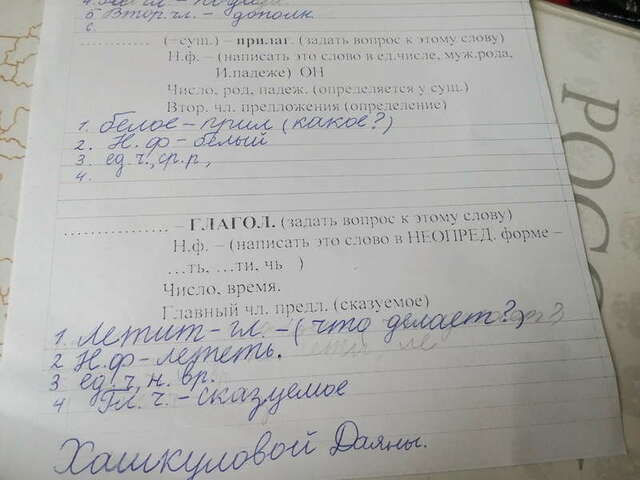 5 Втор. чл. – дополн.
6.
(+сущ.) – прилаг. (задать вопрос к этому слову)
Н.ф. – (написать это слово в ед.числе, муж.рода,
И.падеже) ОН
Число, род, падеж. (определяется у сущ.)
Втор. чл. предложения (определение)
1. белое – прил (какое?)
2. Н. ф – белый
3. ед. ч., ср. р,
4.
.................... – ГЛАГОЛ. (задать вопрос к этому слову)
Н.ф. – (написать это слово в НЕОПРЕД. форме –
…ть, …ти, чь )
Число, время.
Главный чл. предл. (сказуемое)
1 летит – гл – (что делает?)
2 Н. ф – лететь.
3 ед. ч, н. вр.
4 Гл. ч. – сказуемое
Хашкуловой Даяны.
РОС